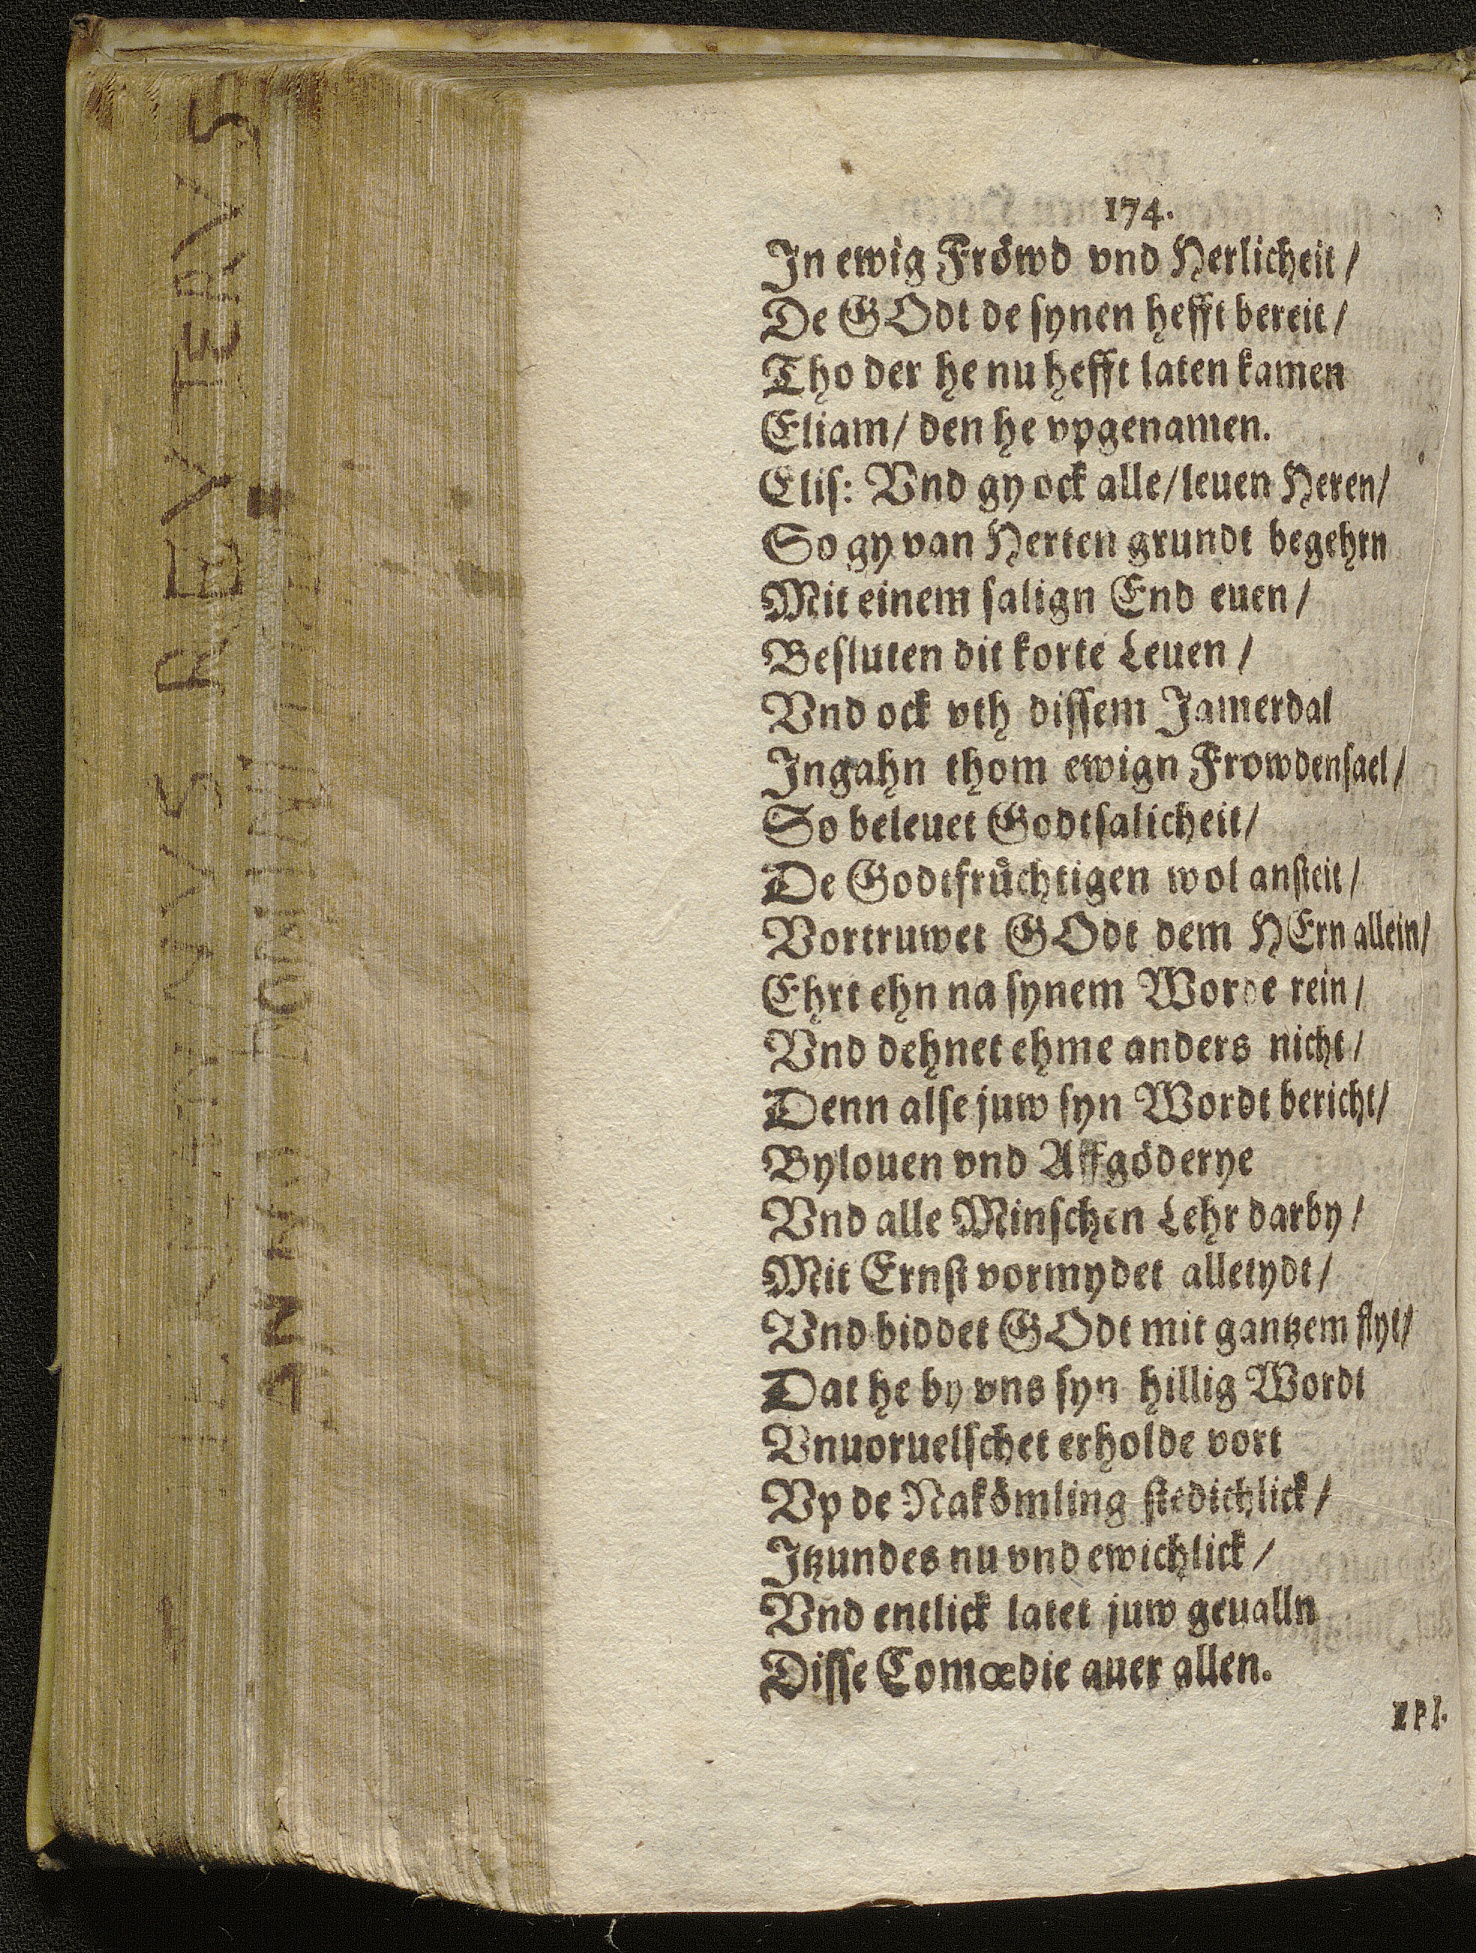 174.
In ewig Fröwd vnd Herlicheit /
De GOdt de synen hefft bereit /
Tho der he nu hefft laten kamen
Eliam / den he vpgenamen.
Elis: Vnd gy ock alle / leuen Heren /
So gy van Herten grundt begehrn
Mit einem salign End euen /
Besluten dit korte Leuen /
Vnd ock vth dissem Jamerdal
Ingahn thom ewign Frowdensael /
So beleuet Godtsalicheit /
De Godtfrůchtigen wol ansteit /
Vortruwet GOdt dem HErn allein /
Ehrt ehn na synem Worde rein /
Vnd dehnet ehme anders nicht /
Denn alse juw syn Wordt bericht /
Bylouen vnd Affgöderye
Vnd alle Minschen Lehr darby /
Mit Ernst vormydet alletydt /
Vnd biddet GOdt mit gantzem flyt /
Dat he by vns syn hillig Wordt
Vnuoruelschet erholde vort
Vp de Nakömling stedichlick /
Itzundes nu vnd ewichlick /
Vnd entlick latet juw geualln
Disse Comœdie auer allen.
EPI.
ANNO DOMINI